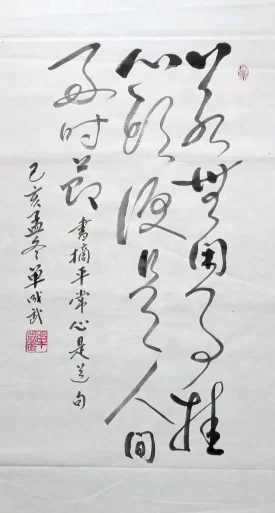 若无闲事挂
心头便是人间
好时节
书摘平常心是道句
己亥孟冬单成武